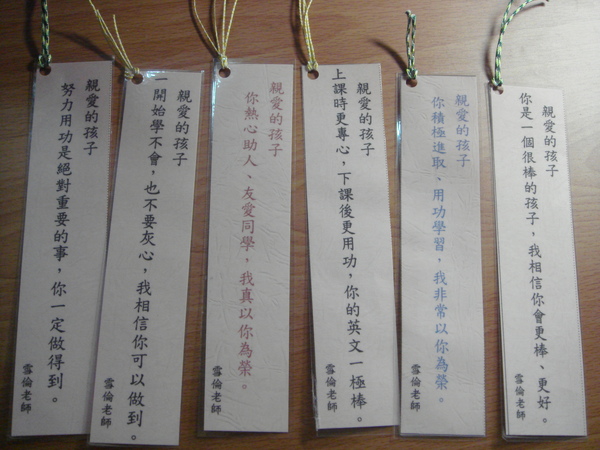 親愛的孩子
努力用功是絕對重要的事，你一定做得到。
雪倫老師
親愛的孩子
一開始學不會，也不要灰心，我相信你可以做到。
雪倫老師
親愛的孩子
你熱心助人、友愛同學，我真以你為榮。
雪倫老師
親愛的孩子
上課時更專心，下課後更用功，你的英文一極棒。
雪倫老師
親愛的孩子
你積極進取、用功學習，我非常以你為榮。
雪倫老師
親愛的孩子
你是一個很棒的孩子，我相信你會更棒、更好。
雪倫老師